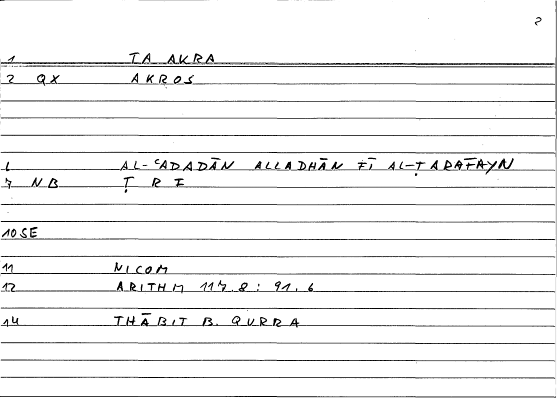 2
1 TA AKRA
2 QX AKROS
6 AL-ʿADADĀN ALLADHĀN FĪ AL-ṬARAFAYN
7 NB Ṭ R F
10 SE
11 NICOM
12 ARITHM 117.8 : 91.6
14 THĀBIT B. QURRA